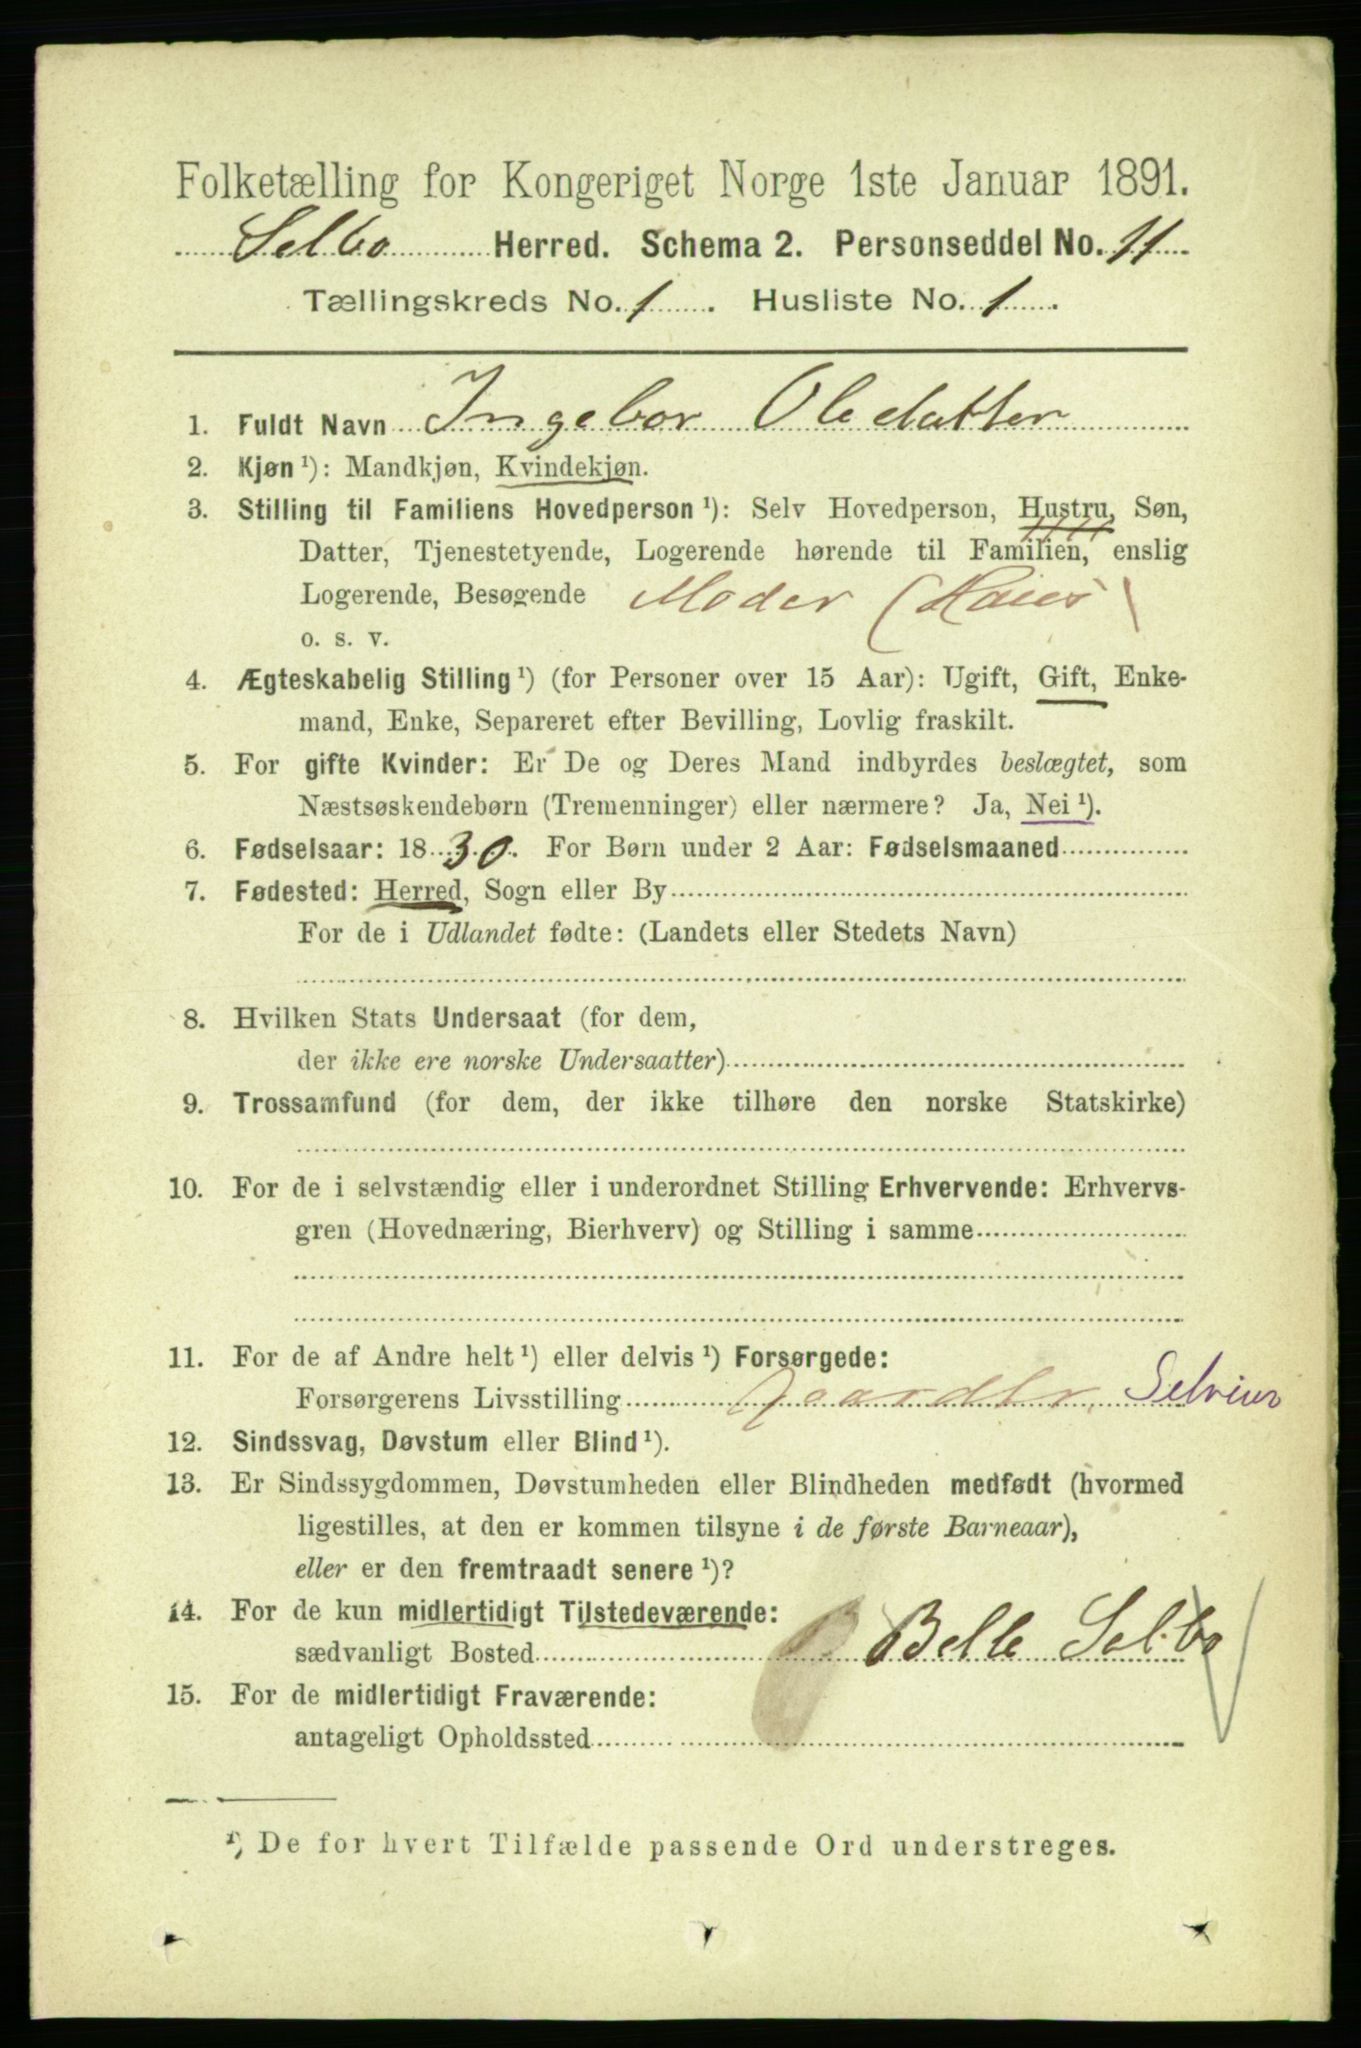 Folketælling for Kongeriget Norge 1ste Januar 1891.
Selbo Herred. Schema 2. Personseddel No. 11
Tællingskreds No. 1. Husliste No. 1.
1. Fuldt Navn Ingebor Oledatter
2. Kjøn ¹): Mandkjøn, Kvindekjøn.
3. Stilling til Familiens Hovedperson ¹): Selv Hovedperson, Hustru, Søn,
Datter, Tjenestetyende, Logerende hørende til Familien, enslig
Logerende, Besøgende Moder
o. s. v.
4. Ægteskabelig Stilling ¹) (for Personer over 15 Aar): Ugift, Gift, Enke-
mand, Enke, Separeret efter Bevilling, Lovlig fraskilt.
5. For gifte Kvinder: Er De og Deres Mand indbyrdes beslægtet, som
Næstsøskendebørn (Tremenninger) eller nærmere? Ja, Nei ¹).
6. Fødselsaar: 1830. For Børn under 2 Aar: Fødselsmaaned
7. Fødested: Herred, Sogn eller By
For de i Udlandet fødte: (Landets eller Stedets Navn)
8. Hvilken Stats Undersaat (for dem,
der ikke ere norske Undersaatter)
9. Trossamfund (for dem, der ikke tilhøre den norske Statskirke)
10. For de i selvstændig eller i underordnet Stilling Erhvervende: Erhvervs-
gren (Hovednæring, Bierhverv) og Stilling i samme
11. For de af Andre helt ¹) eller delvis ¹) Forsørgede:
Forsørgerens Livsstilling Gaardbr. Selveier
12. Sindssvag, Døvstum eller Blind ¹).
13. Er Sindssygdommen, Døvstumheden eller Blindheden medfødt (hvormed
ligestilles, at den er kommen tilsyne i de første Barneaar),
eller er den fremtraadt senere ¹)?
14. For de kun midlertidigt Tilstedeværende:
sædvanligt Bosted Belle Selbo
15. For de midlertidigt Fraværende:
antageligt Opholdssted
¹) De for hvert Tilfælde passende Ord understreges.